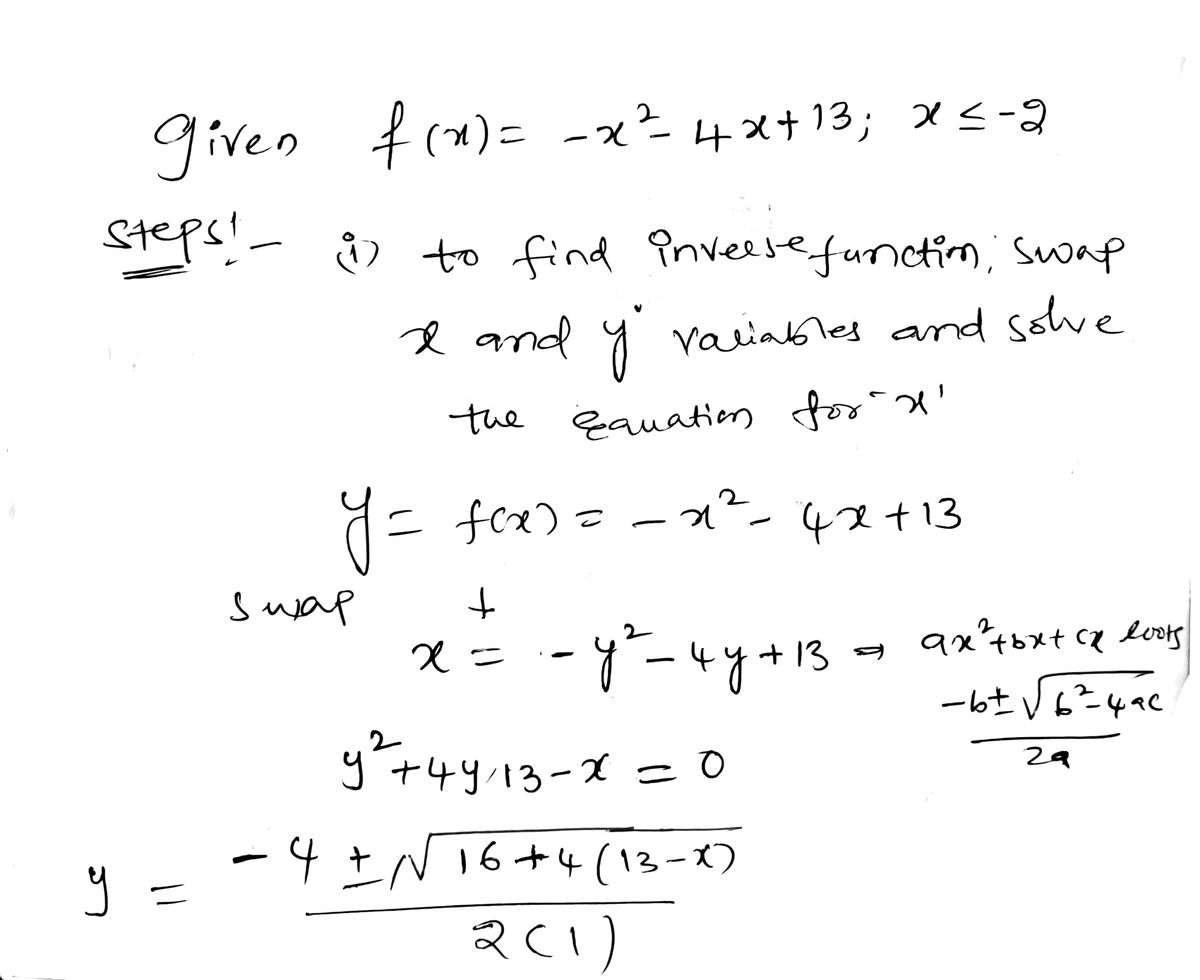 given f(x) = -x² - 4x + 13; x ≤ -2
steps!- i) to find inverse function, swap
x and y variables and solve
the equation for 'x'
y = f(x) = -x² - 4x + 13
swap
x = -y² - 4y + 13 ⇒ ax² + bx + cx roots
-b ± √b² - 4ac
2a
y² + 4y 13 - x = 0
y = -4 ± √16 + 4(13 - x)
2(1)